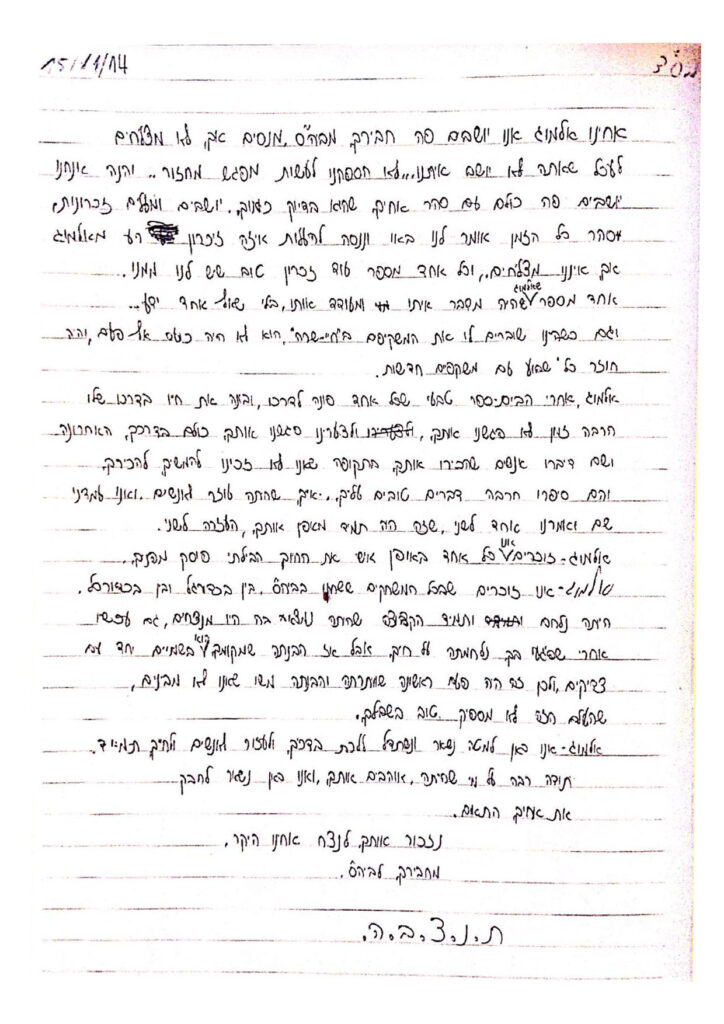 בס"ד
15/11/14
אחינו אלמוג אנו יושבים פה חבריך מביה"ס, מנסים אך לא מצליחים
לעכל שאתה לא יושב איתנו... לא הספקנו לעשות מפגש מחזור.. והנה אנחנו
יושבים פה כולם עם סהר אחיך, שהוא בדיוק כמוך.. יושבים ומעלים זכרונות,
וסהר כל הזמן אומר לנו בואו וננסה להעלות איזה זיכרון רע מאלמוג
אך איננו מצליחים.. וכל אחד מספר עוד זכרון טוב שיש לנו ממנו..
אחד מספר שאלמוג היה מדבר איתו ומעודד אותו, בלי שאף אחד ידע...
וגם כשהיינו שוברים לו את המשקפיים ב"חיי-שרה", הוא לא היה כועס אף פעם, והיה
חוזר כל שבוע עם משקפיים חדשות.
אלמוג, אחרי הבית-ספר טבעי שכל אחד פונה לדרכו, ובונה את חייו בדרכו שלו
הרבה זמן לא פגשנו אותך, ולצערינו פגשנו אותך, כולם בדרכך, האחרונה
ושם דיברו אנשים שהכירו אותך, בתקופה שאנו לא זכינו להמשיך להכירך,
והם סיפרו הרבה דברים טובים עליך... איך שהיית עוזר לאנשים. ואנו עמדנו
שם ואמרנו אחד לשני, שזה היה תמיד מאפיין אותך, העזרה לשני.
אלמוג- זוכרים אנו כל אחד באופן אישי את החיוך הבלתי פוסק מפניך..
אלמוג- אנו זוכרים שבכל המשחקים ששיחקנו בביה"ס, בין בכדורגל ובין בכדורסל,
היית נלחם ותמיד הקבוצה שהיית נמצא בה היו מנצחים, גם עכשיו
אחרי שפגעו בך, נלחמת על חייך, אבל אז הבנת שמקומך הוא בשמיים יחד עם
צדיקים, ולכן זה היה פעם ראשונה שוויתרת והבנת משו שאנו לא מבינים,
שהעולם הזה לא מספיק טוב בשבילך.
אלמוג- אנו כאן למטה נשאר ונשתדל ללכת בדרכך, ולעזור לאנשים ולחייך תמייד.
תודה רבה על מי שהיית, אוהבים אותך, ואנו כאן נשאר לחבק
את אחיך, התאום.
נזכור אותך לנצח אחינו היקר,
מחבריך לביה"ס.
ת.נ.צ.ב.ה.